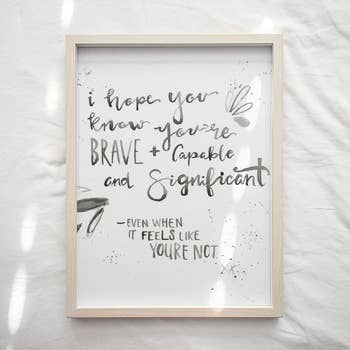 i hope you
know you're
BRAVE + Capable
and Significant
—EVEN WHEN
IT FEELS LIKE
YOURE NOT.